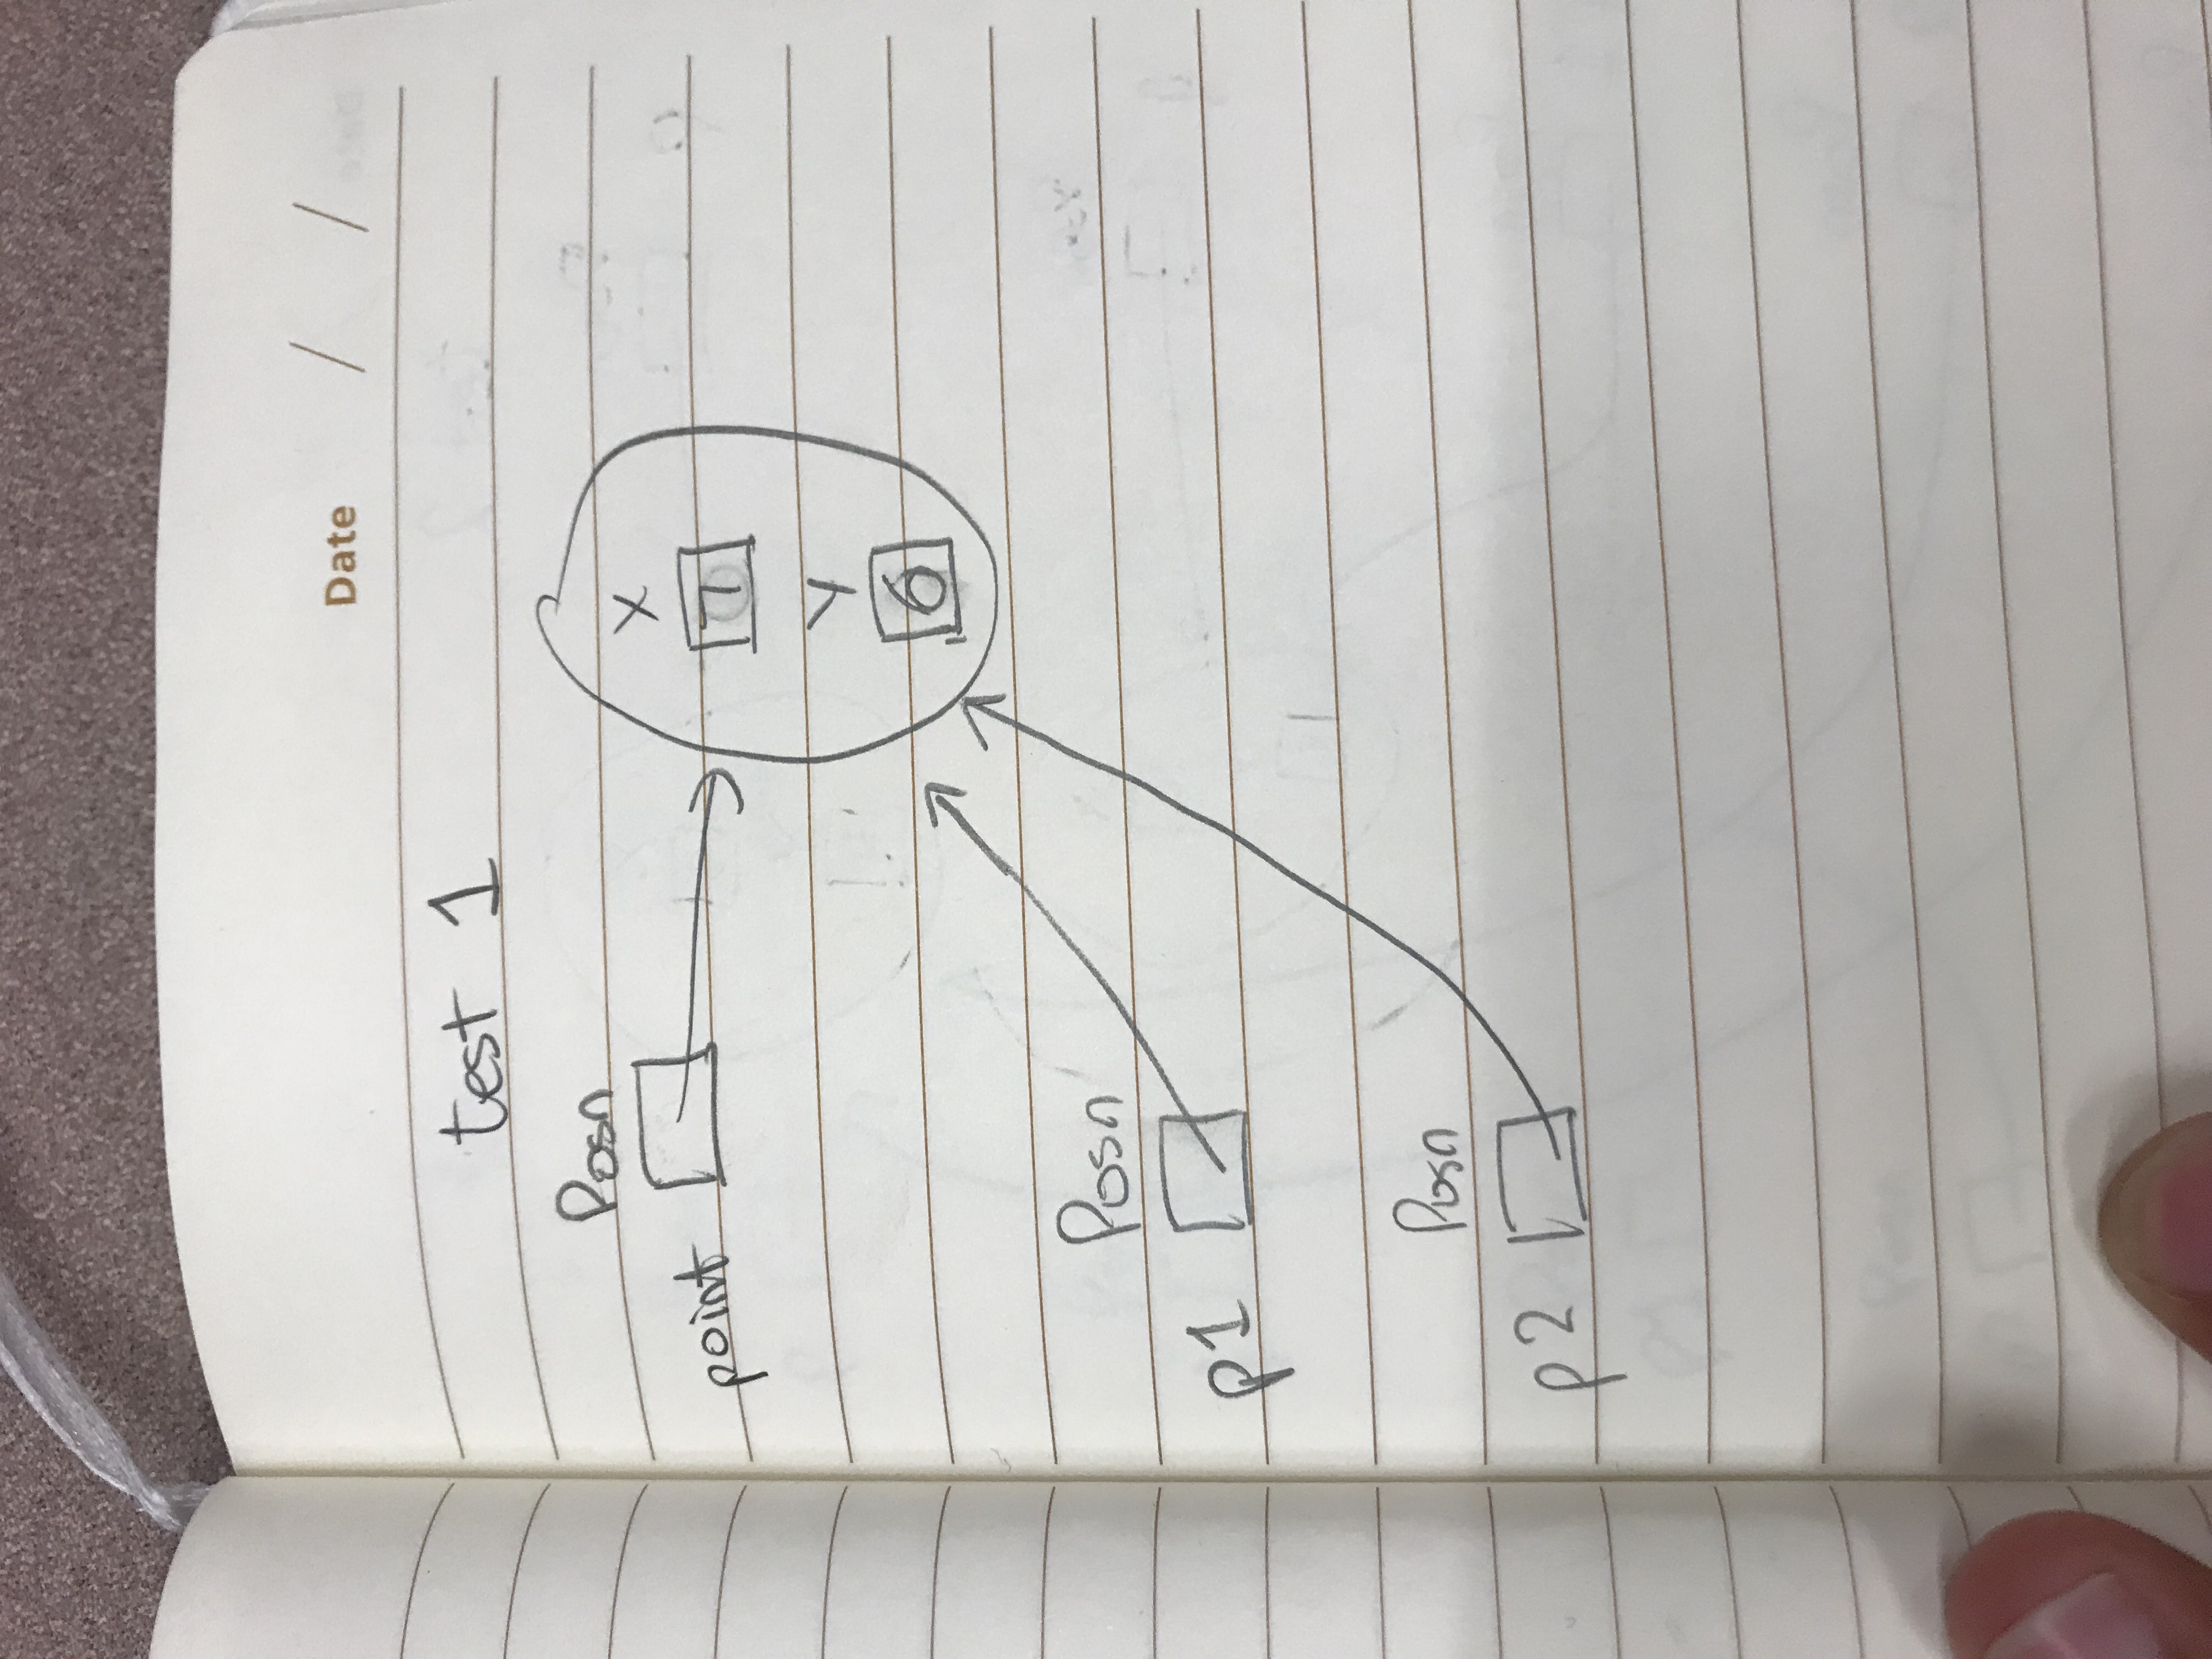 Date / /
test 1
Posn
X
point
7
Y
6
Posn
p1
Posn
p2